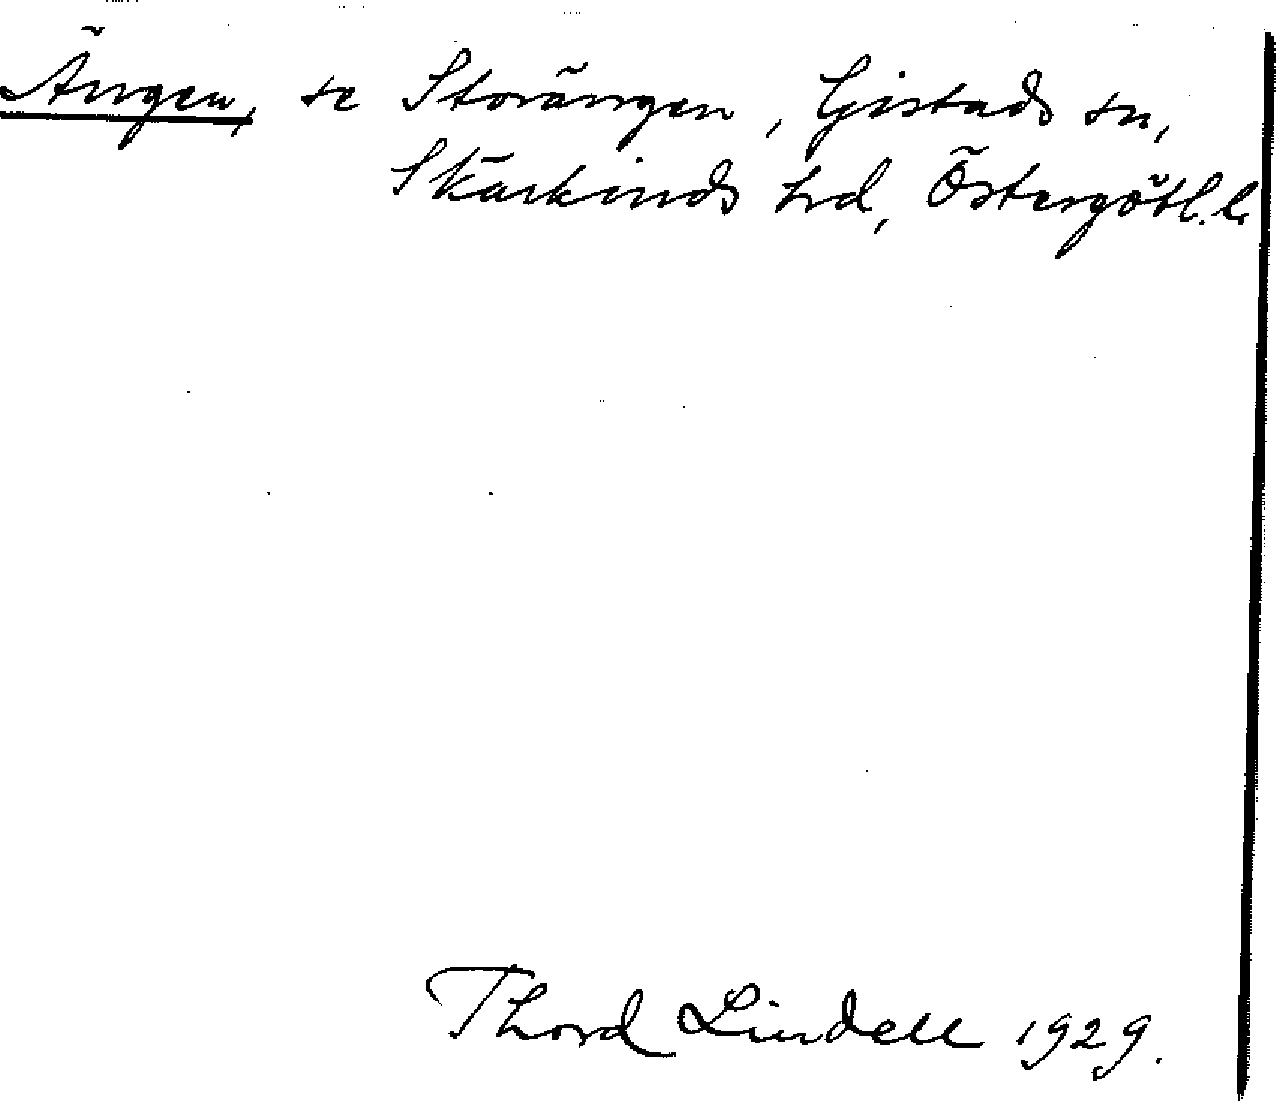 Ängen, se Storängen, Gistads sn,
Skärkinds hrd, Östergötl. l.
Thord Lindell 1929.